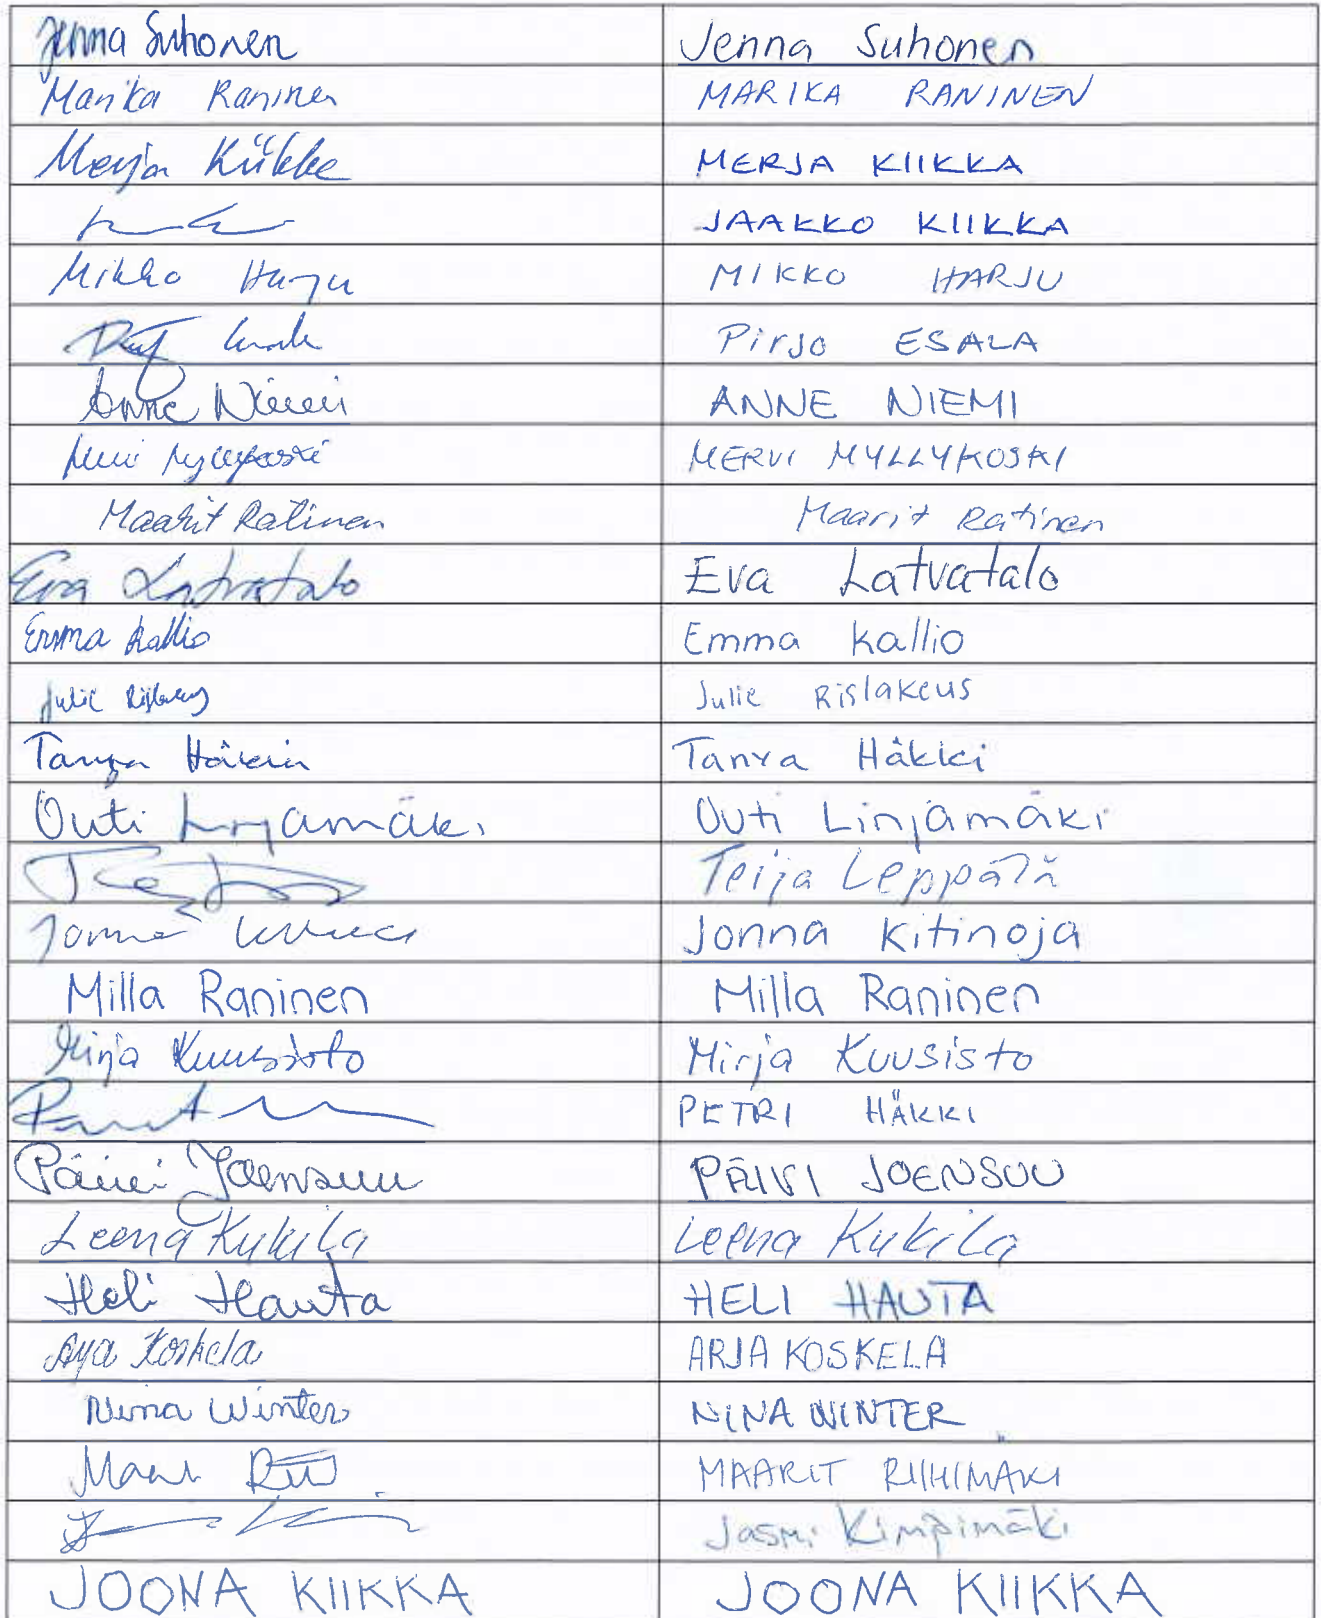 Jenna Suhonen Jenna Suhonen
Marika Raninen MARIKA RANINEN
Merja Kiikka MERJA KIIKKA
JAAKKO KIIKKA
Mikko Harju MIKKO HARJU
Pirjo ESALA
Anne Niemi ANNE NIEMI
MERVI MYLLYKOSKI
Maarit Ratinen Maarit Ratinen
Eva Latvatalo Eva Latvatalo
Emma Kallio Emma Kallio
Julie Julie Rislakeus
Tanya Häkki
Outi Linjamäki Outi Linjamäki
Teija Leppälä
Jonna Jonna Kitinoja
Milla Raninen Milla Raninen
Mirja Kuusisto Mirja Kuusisto
PETRI HÄKKI
Päivi Joensuu PÄIVI JOENSUU
Leena Kukila Leena Kukila
Heli Hauta HELI HAUTA
Arja Koskela ARJA KOSKELA
Nina Winter NINA WINTER
MAARIT RIIHIMÄKI
Jasmi Kimpimäki
JOONA KIIKKA JOONA KIIKKA